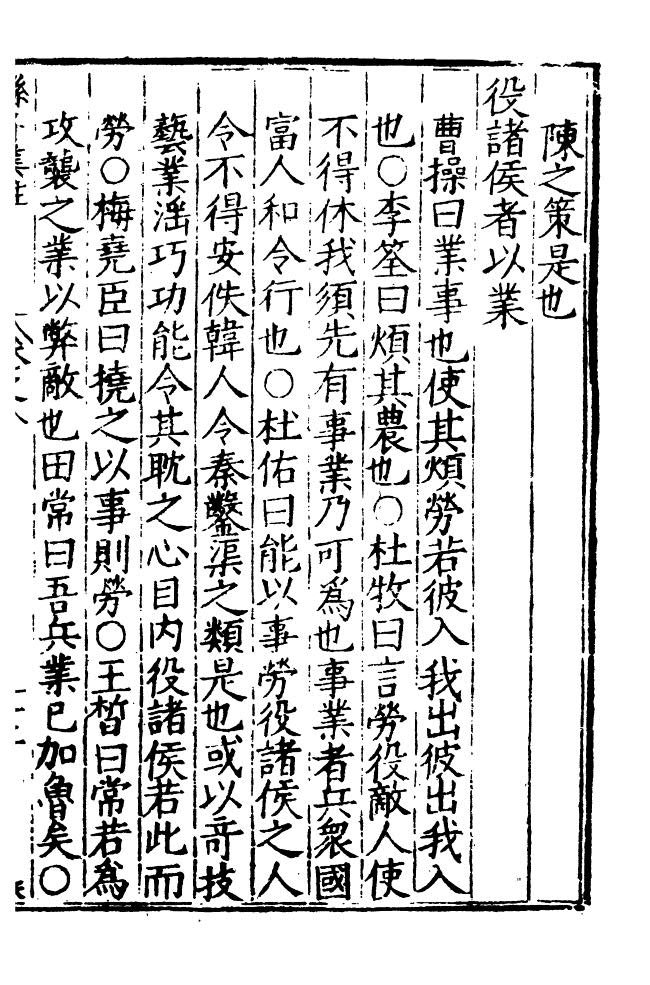 陳之策是也
役諸侯者以業
曹操曰業事也使其煩勞若彼入我出彼出我入
也○李筌曰煩其農也○杜牧曰言勞役敵人使
不得休我須先有事業乃可爲也事業者兵衆國
富人和令行也○杜佑曰能以事勞役諸侯之人
令不得安佚韓人令秦鑿渠之類是也或以奇技
藝業淫巧功能令其耽之心目内役諸侯若此而
勞○梅堯臣曰撓之以事則勞○王晳曰常若爲
攻襲之業以弊敵也田常曰吾兵業已加魯矣○